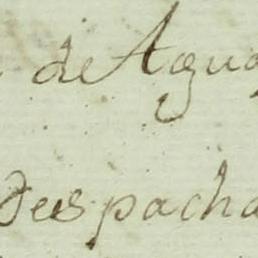 de Agua
Despacha